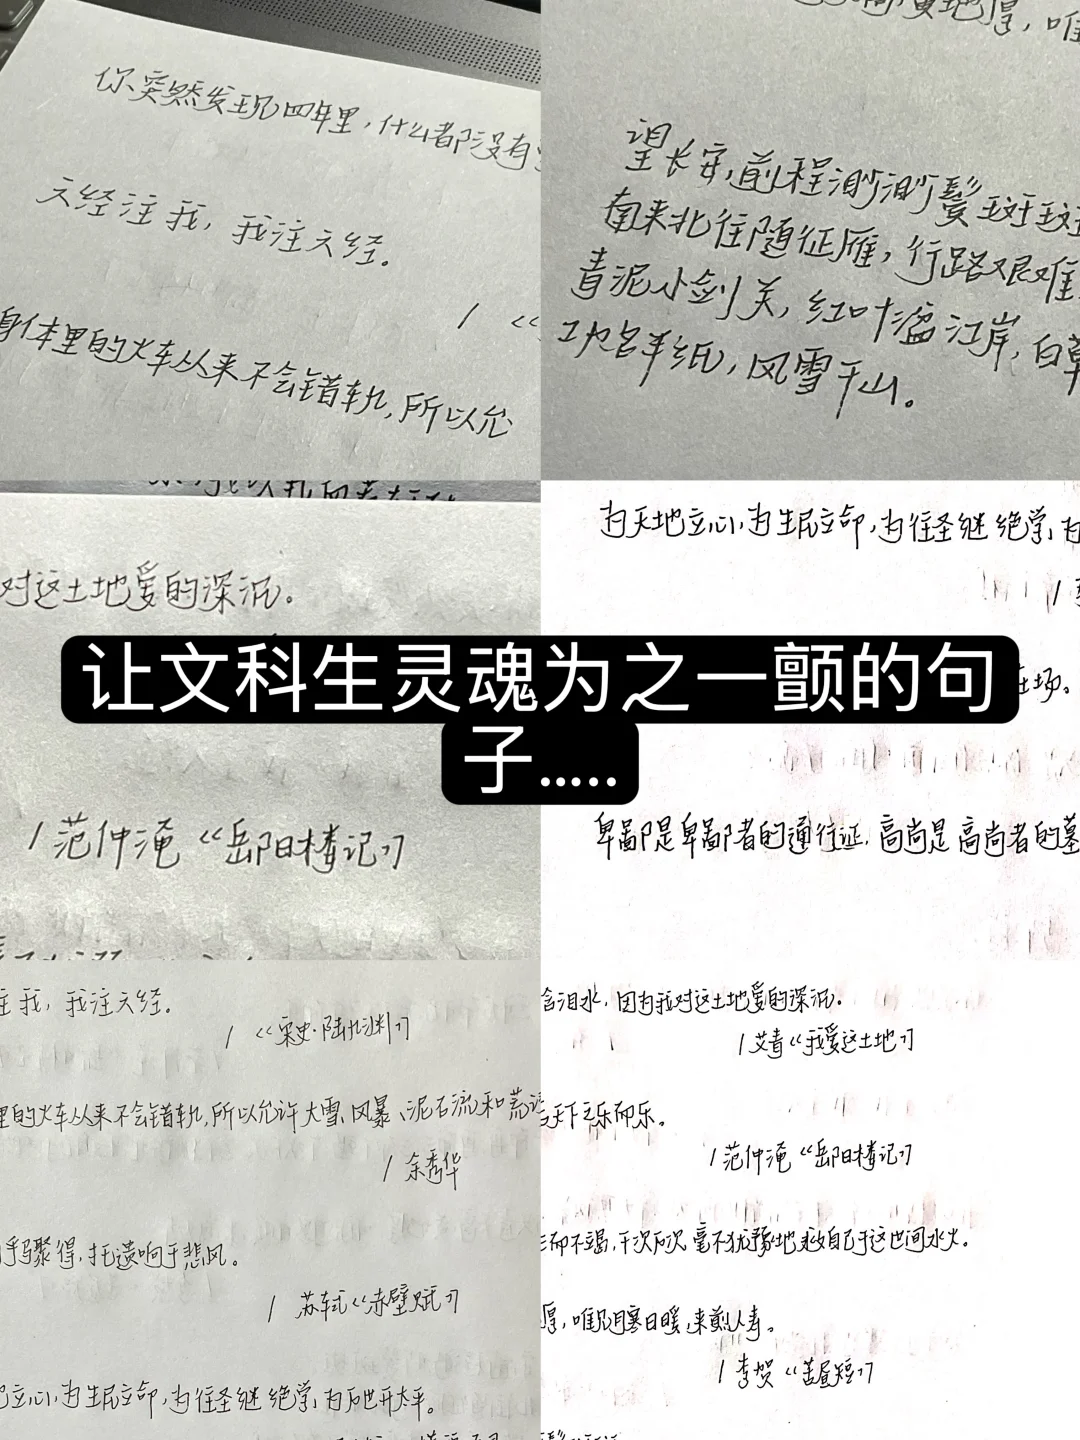 你突然发现四年里，什么都没有
六经注我，我注六经。
身体里的火车从来不会错轨，所以允
地厚，唯
望长安，前程渺渺鬓斑斑
南来北往随征雁，行路艰难
青泥小剑关，红叶湓江岸，白草
功名半纸，风雪千山。
对这土地爱的深沉。
/ 范仲淹《岳阳楼记》
为天地立心，为生民立命，为往圣继绝学，为
在场。
卑鄙是卑鄙者的通行证，高尚是高尚者的墓
让文科生灵魂为之一颤的句
子.....
注我，我注六经。
/ 《宋史·陆九渊》
里的火车从来不会错轨，所以允许大雪、风暴、泥石流和荒谬
/ 余秀华
乎骤得，托遗响于悲风。
/ 苏轼《赤壁赋》
立心，为生民立命，为往圣继绝学，为万世开太平。
含泪水，因为我对这土地爱的深沉。
/ 艾青《我爱这土地》
天下之乐而乐。
/ 范仲淹《岳阳楼记》
而不竭，千次万次毫不犹豫地救自己于这世间水火。
厚，唯见月寒日暖，来煎人寿。
/ 李贺《苦昼短》